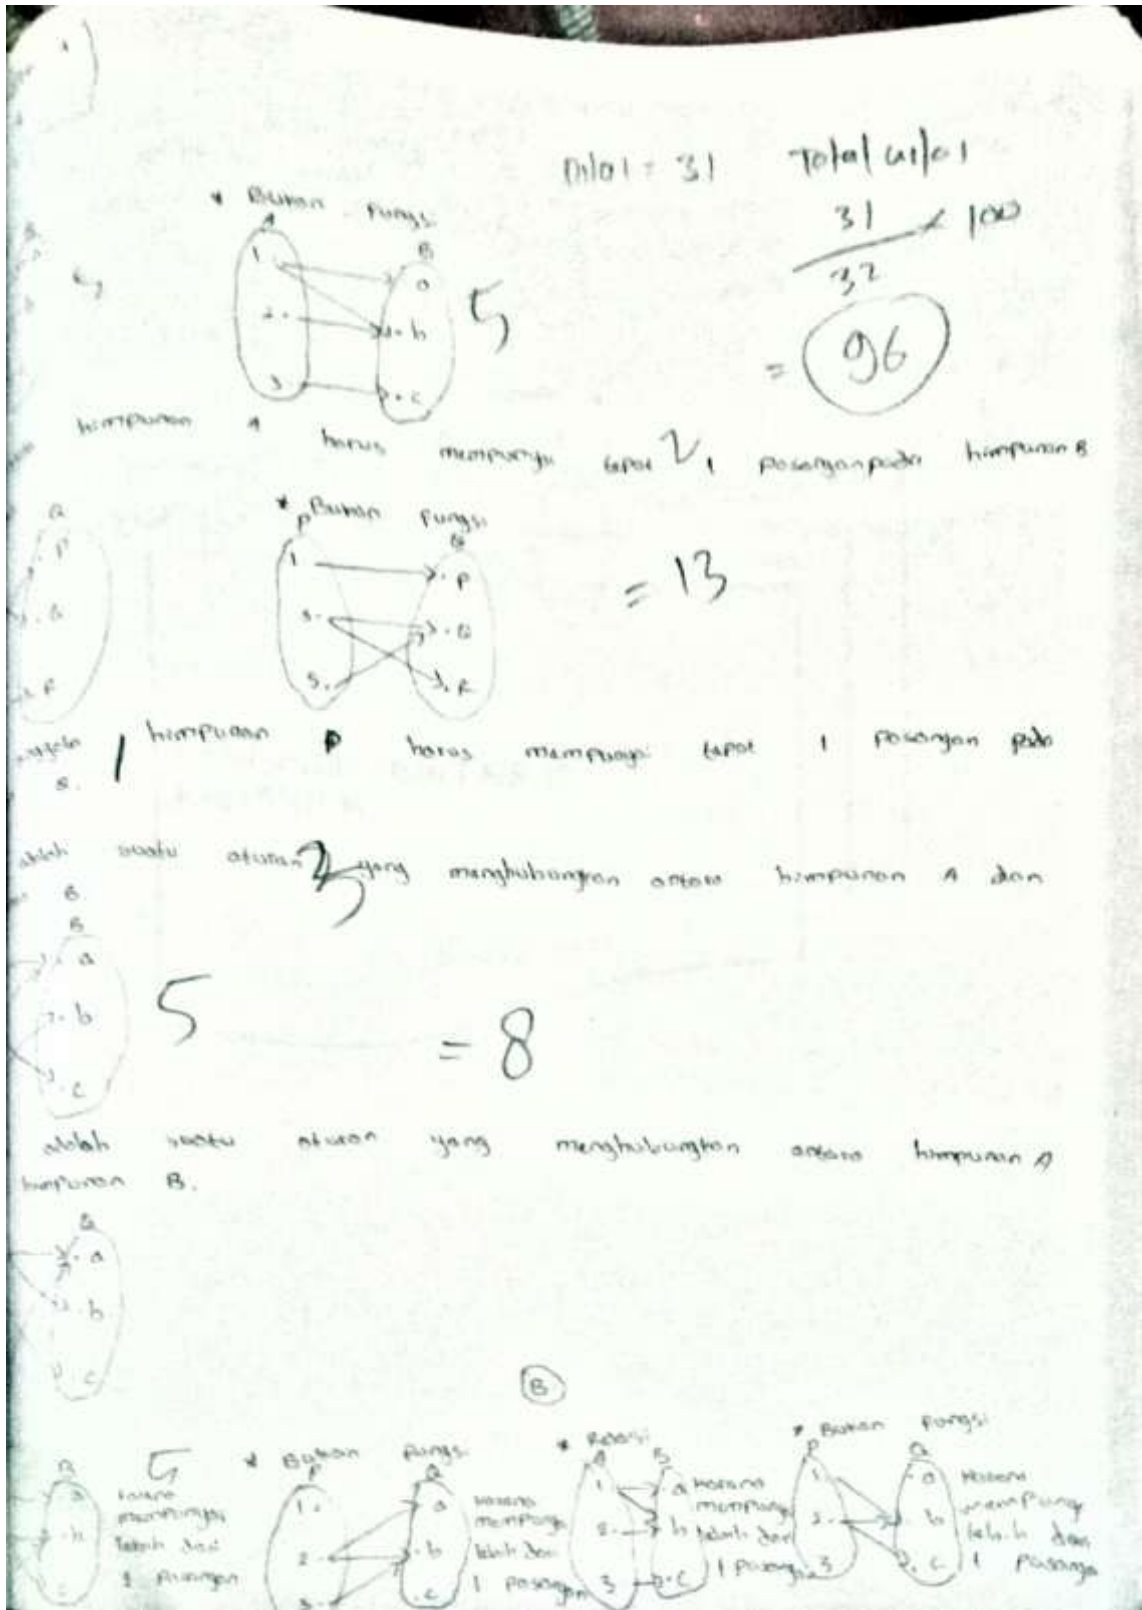 Nilai = 31 Total nilai
31
32
x 100
= 96
* Bukan Fungsi
A B
1. a
2. b
3. c
5
himpunan A harus mempunyai tepat 1 pasangan pada himpunan B
2
* Bukan Fungsi
P Q
1 . P
3. . Q
5. . R
= 13
Q
. P
. Q
. R
1 himpunan P harus mempunyai tepat 1 pasangan pada
adalah suatu aturan yang menghubungkan antara himpunan A dan
B.
B
. a
. b
. c
5 = 8
adalah suatu aturan yang menghubungkan antara himpunan A
himpunan B.
. a
. b
. c
B
5
karena
mempunyai
lebih dari
1 pasangan
* Bukan Fungsi
P Q
1. . a
2. . b
3. . c
karena
mempunya
lebih dari
1 pasangan
* Relasi
A B
1 . a
2. . b
3 . c
karena
mempunya
lebih dari
1 pasangan
* Bukan Fungsi
P Q
1. . a
2. . b
3 . c
karena
mempunya
lebih dari
1 pasanga